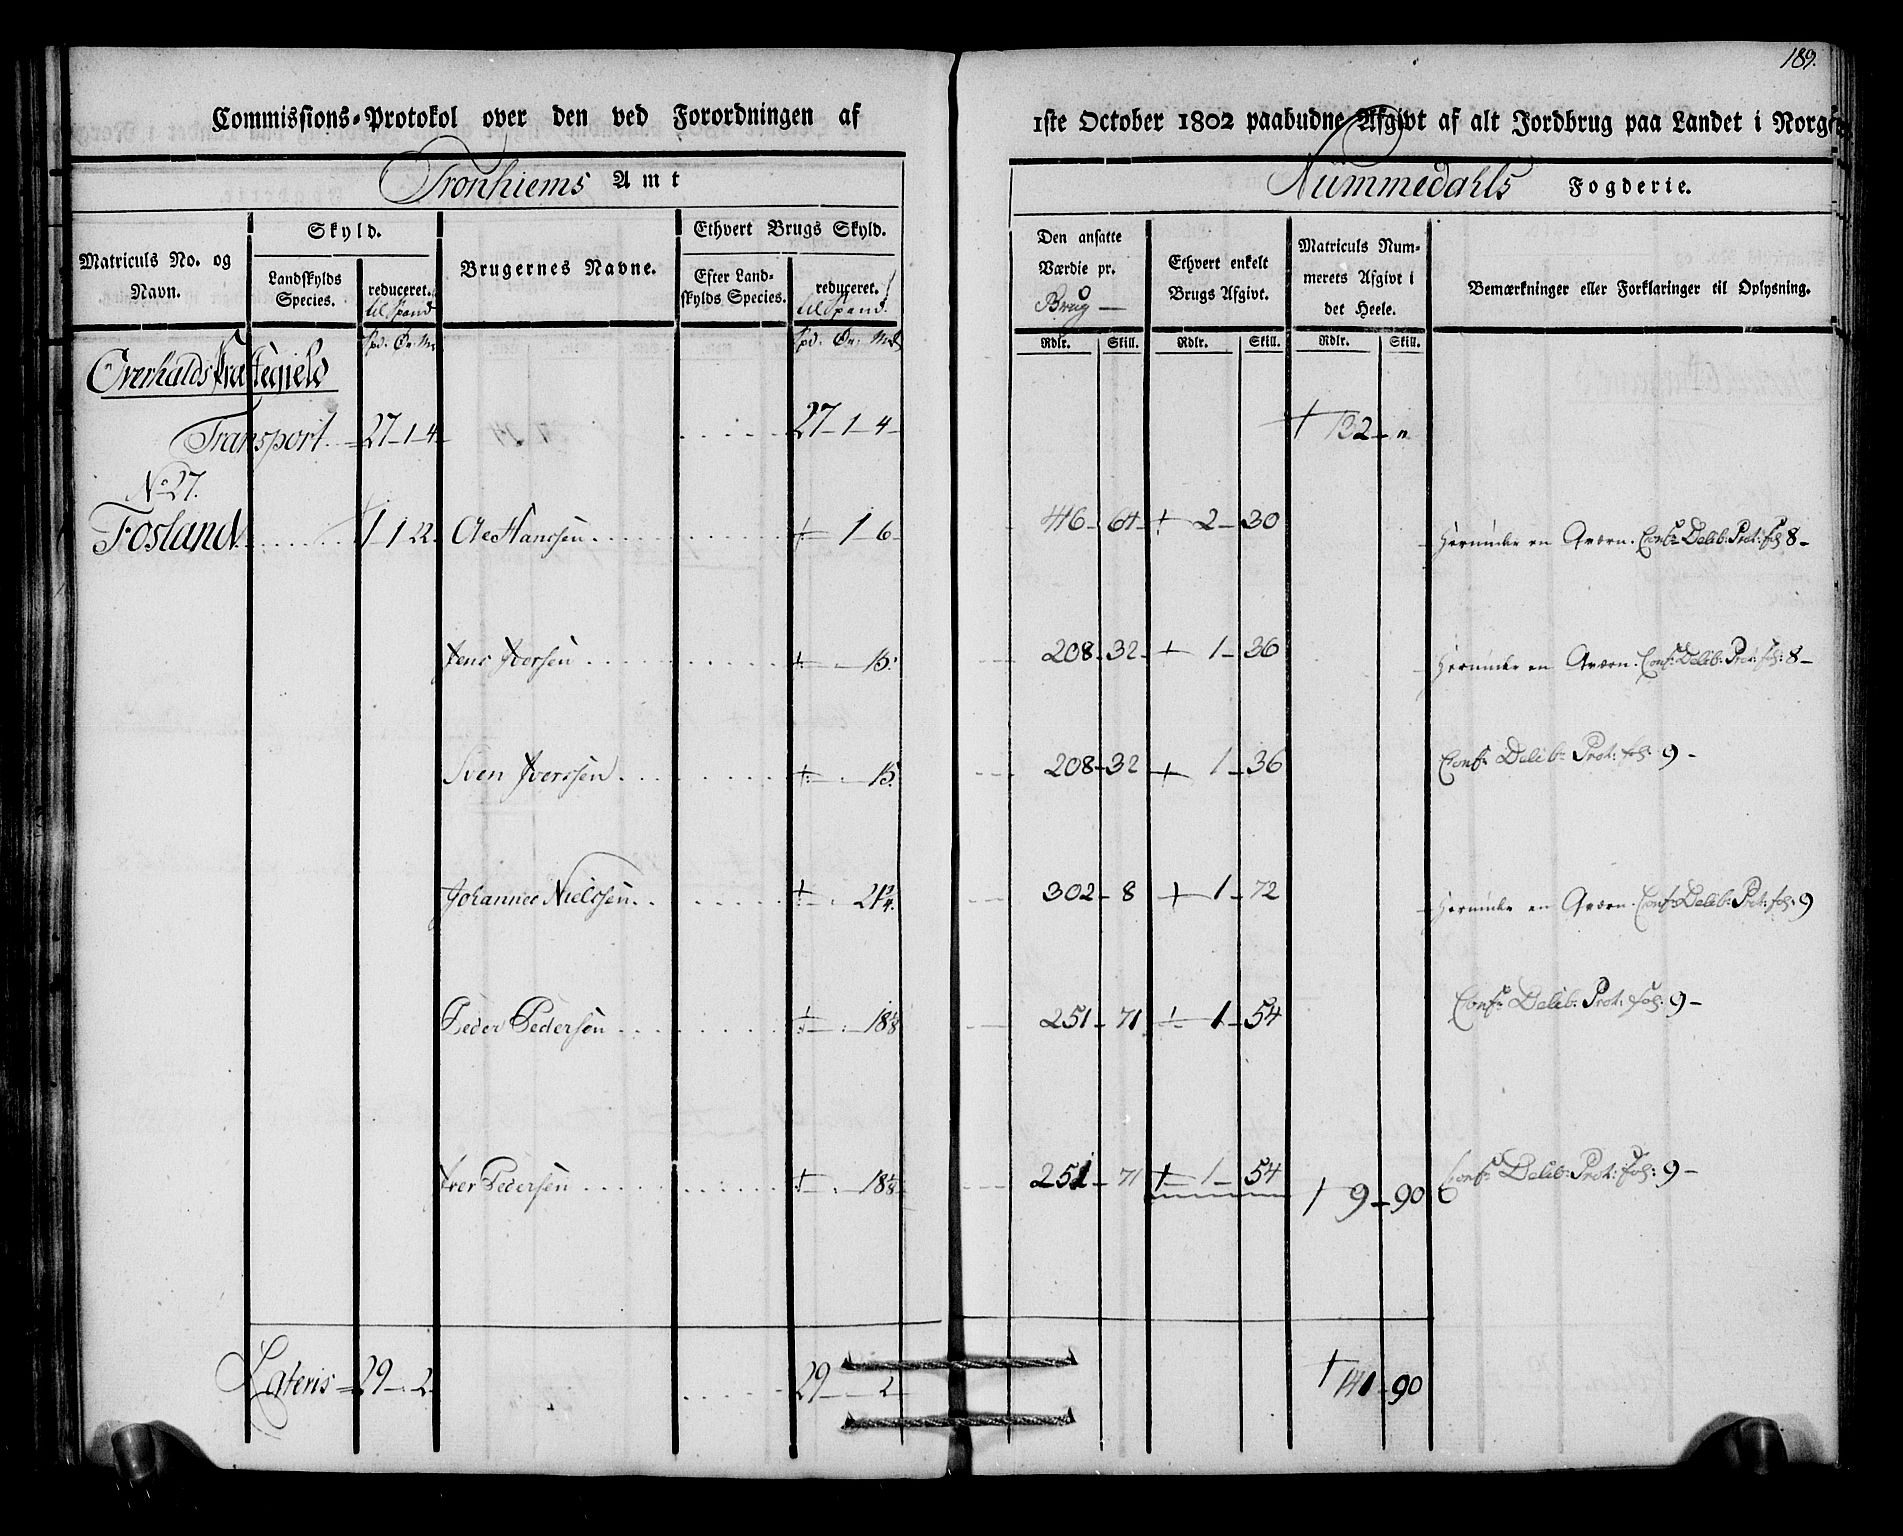 189.
Commissions-Protokol over den ved Forordningen af 1ste October 1802 paabudne Afgivt af alt Jordbrug paa Landet i Norge
Tronhiems Amt Nummedahls Fogderie.
Matriculs No. og Navn.
Skyld.
Landskylds Species.
reduceret. til Spand
Brugernes Navne.
Ethvert Brugs Skyld.
Efter Landskylds Species.
reduceret. til Spand.
Den ansatte Værdie pr. Brug
Ethvert enkelt Brugs Afgivt.
Matriculs Nummerets Afgivt i det Heele.
Bemærkninger eller Forklaringer til Oplysning.
Spd. Ør. Mk Spd. Ør. Mk Rdlr. Skill. Rdlr. Skill. Rdlr. Skill.
Overhalds Præstegield
Transport 27 - 1 - 4 27 - 1 - 4 - 132 - "
No 27.
Fosland 1 1 22 Ole Hanssen 1 - 6 - 416 - 64 - 2 - 30 Herunder en Qværn. Conf: Delib: Prot: fol 8 -
Jens Iversen 15. 208 - 32 - 1 - 36 Herunder en Qværn. Conf: Delib: Prot: fol: 8 -
Sven Iverssen 15. 208 - 32 1 - 36 Conf: Delib: Prot: fol: 9 -
Johannes Nielssen 21 3/4. 302 - 8 1 - 72 Herunder en Qværn. Conf: Delib: Prot: fol: 9
Peder Pedersen 18 1/8 251 - 71 1 - 54 Conf: Delib: Prot: fol: 9 -
Iver Pedersen 18 1/8 251 - 71 1 - 54 Conf: Delib: Prot: fol: 9 -
9 - 90
Lateris 29 - 2 29 - 2 141 - 90